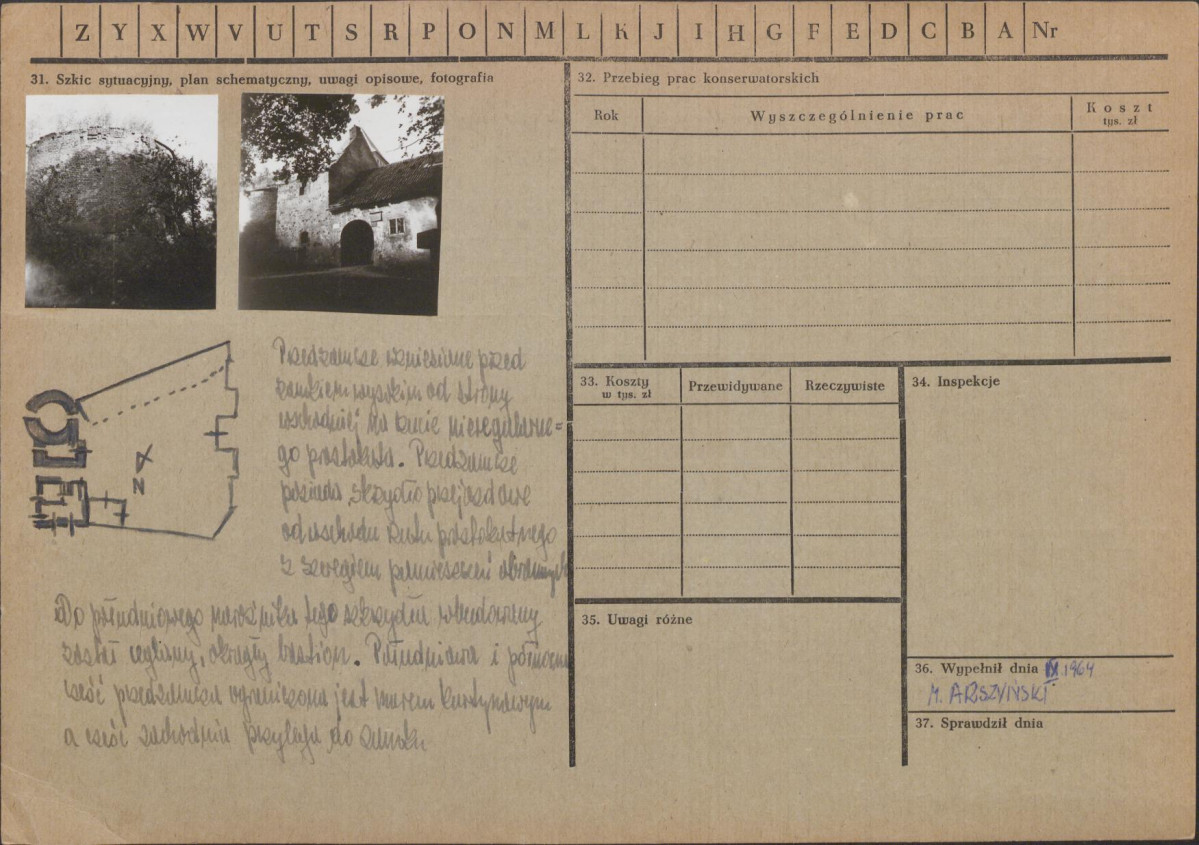 Z Y X W V U T S R P O N M L K J I H G F E D C B A Nr
31. Szkic sytuacyjny, plan schematyczny, uwagi opisowe, fotografia
Przedzamcze wzniesione przed
zamkiem wysokim od strony
wschodniej na rzucie nieregularne=
go prostokąta. Przedzamcze
posiada skrzydło przejazdowe
od wschodu rzutu prostokątnego
z szeregiem pomieszczeń obronnych
Do południowego narożnika tego skrzydła wbudowany
został ceglany, okrągły bastion. Południowa i północna
część przedzamcza ograniczona jest murem kurtynowym
a część zachodnia przylega do zamku
N
32. Przebieg prac konserwatorskich
Rok
Wyszczególnienie prac
Koszt
tys. zł
33. Koszty
w tys. zł
Przewidywane
Rzeczywiste
34. Inspekcje
35. Uwagi różne
36. Wypełnił dnia IX 1964
M. ARSZYŃSKI
37. Sprawdził dnia